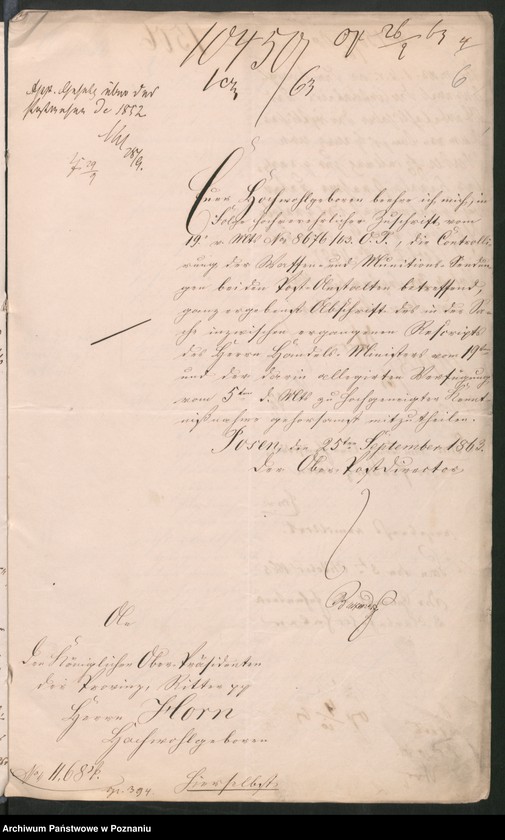 10450/63
26/9 63
6
Gesetz über das
Postwesen de 1852
29/9
28/9.
Euer Hochwohlgeboren beehre ich mich, in
Folge hochverehrlicher Zuschrift vom
19. v. Mts No 8676/63. O. P., die Controlli-
rung der Waffen- und Munitions-Sendun-
gen bei den Post-Anstalten betreffend,
ganz ergebenst Abschrift des in der Sa-
che inzwischen ergangenen Rescripts
des Herrn Handels-Ministers vom 19ten
und der darin allegirten Verfügung
vom 5ten d. Mts zu hochgeneigter Kennt-
nißnahme gehorsamst mitzutheilen.
Posen, den 25ten September 1863.
Der Ober-Postdirector
An
den Königlichen Ober-Präsidenten
der Provinz, Ritter pp
Herrn Horn
Hochwohlgeboren
No 11.684.
Hierselbst.
Archiwum Państwowe w Poznaniu